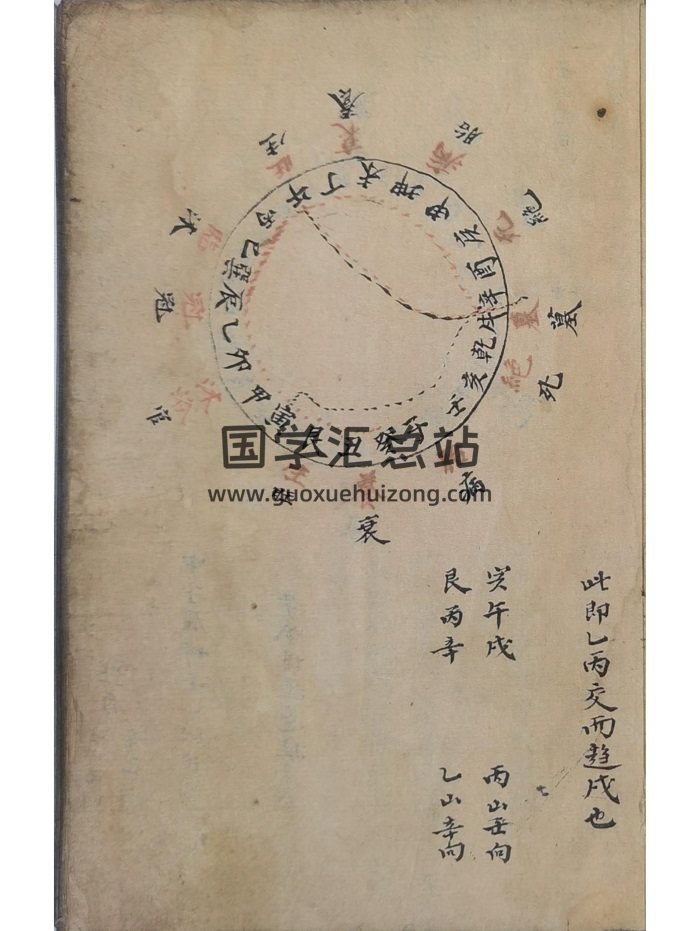 養
胎
絕
墓
死
病
衰
官
冠
沐
生
衰
病
墓
絕
沐浴
冠
午丁未坤申庚酉辛戌乾亥壬子癸丑艮寅甲卯乙辰巽巳丙
此即乙丙交而趨戌也
寅午戌 丙山壬向
艮丙辛 乙山辛向
国学汇总站
www.guoxuehuizong.com